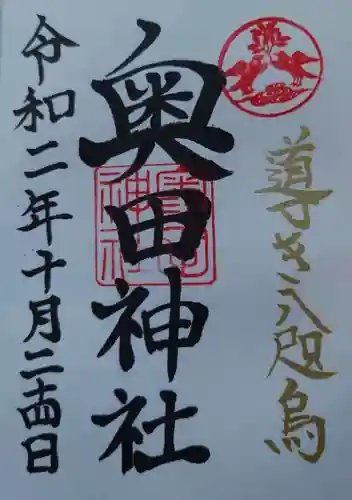 導き之八咫烏
奥田神社
令和二年十月二十四日